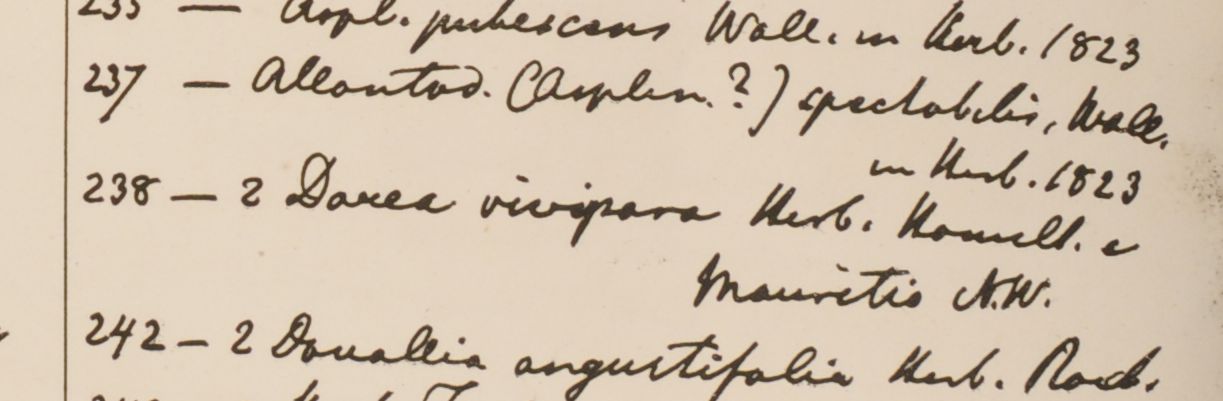 235 — Aspl. pubescens Wall. in Herb. 1823
237 — Allantod. (Asplen.?) spectabilis, Wall.
in Herb. 1823
238 — 2 Darea vivipara Herb. Hamilt. e
Mauritio N.W.
242 — 2 Davallia angustifolia Herb. Roxb.